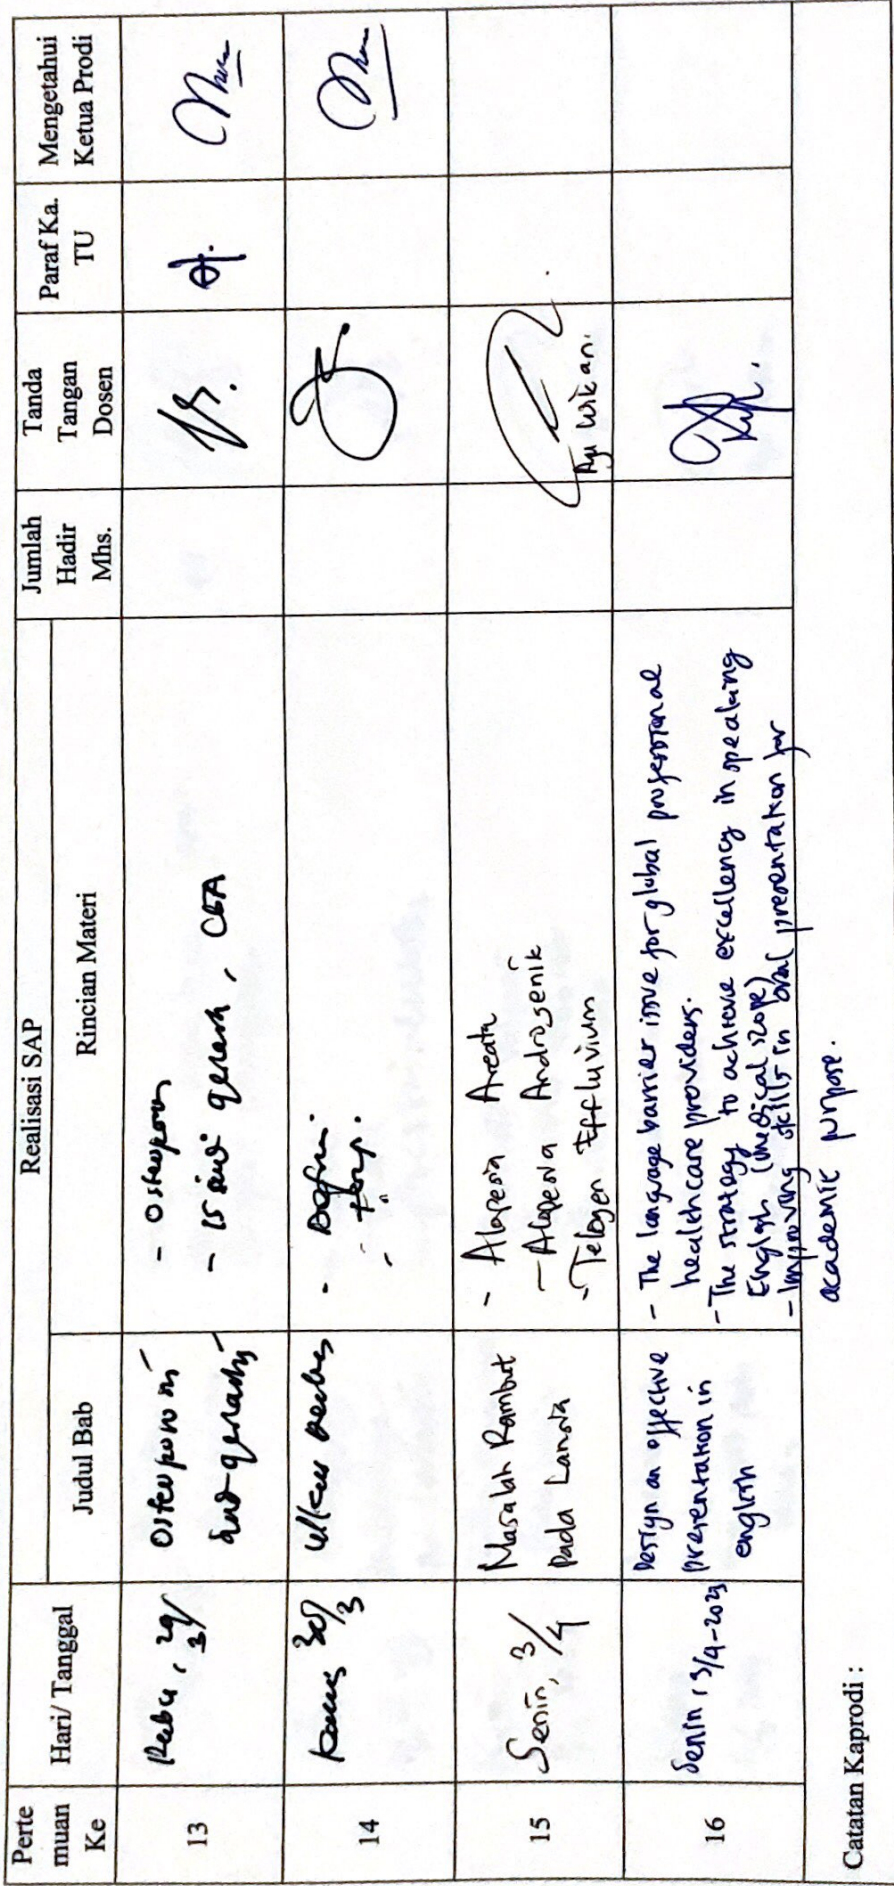 Perte
muan
Ke
Hari/ Tanggal
Realisasi SAP
Judul Bab
Rincian Materi
Jumlah
Hadir
Mhs.
Tanda
Tangan
Dosen
Paraf Ka.
TU
Mengetahui
Ketua Prodi
13
Rabu, 29/3
- Osteoporosis
14
Kamis 30/3
15
Senin, 3/4
Masalah Rambut
pada Lansia
- Alopesia Areata
- Alopesia Androgenik
- Telogen Effluvium
Ayu Wikan.
16
Senin, 3/4-2023
Design an effective
presentation in
english
- The language barrier issue for global professional
healthcare providers.
- The strategy to achieve excellency in speaking
English (medical scope)
- Improving skills in oral presentation for
academic purpose.
Catatan Kaprodi :